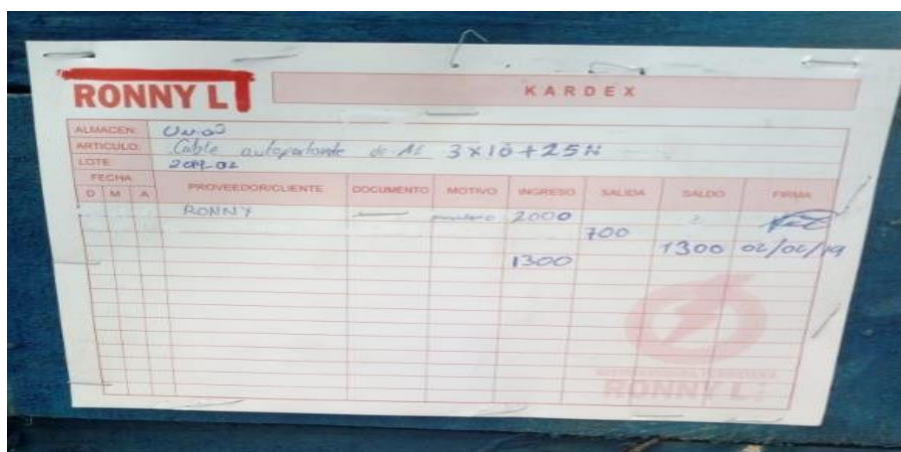 RONNY L
KARDEX
ALMACEN:
ARTICULO: Cable autoportante de Al 3x16+25N
LOTE: 2019-02
FECHA PROVEEDOR/CLIENTE DOCUMENTO MOTIVO INGRESO SALIDA SALDO FIRMA
D M A
RONNY 2000
700
1300 02/02/19
1300
RONNY L